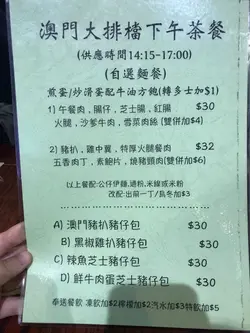 澳門大排檔下午茶餐
(供應時間14:15-17:00)
(自選麵餐)
煎蛋/炒滑蛋配牛油方飽(轉多士加$1)
1) 午餐肉，腸仔，芝士腸，紅腸 $30
火腿，沙爹牛肉，雪菜肉絲 (雙併加$4)
2) 豬扒，雞中翼，特厚火腿餐肉 $32
五香肉丁，素鮑片，燒豬頸肉(雙併加$6)
以上餐配:公仔伊麵,通粉,米線或米粉
改配:出前一丁/烏冬加$3
A) 澳門豬扒豬仔包 $30
B) 黑椒雞扒豬仔包 $30
C) 辣魚芝士豬仔包 $30
D) 鮮牛肉蛋芝士豬仔包 $30
奉送餐飲 凍飲加$2檸檬加$2汽水加$3特飲加$5